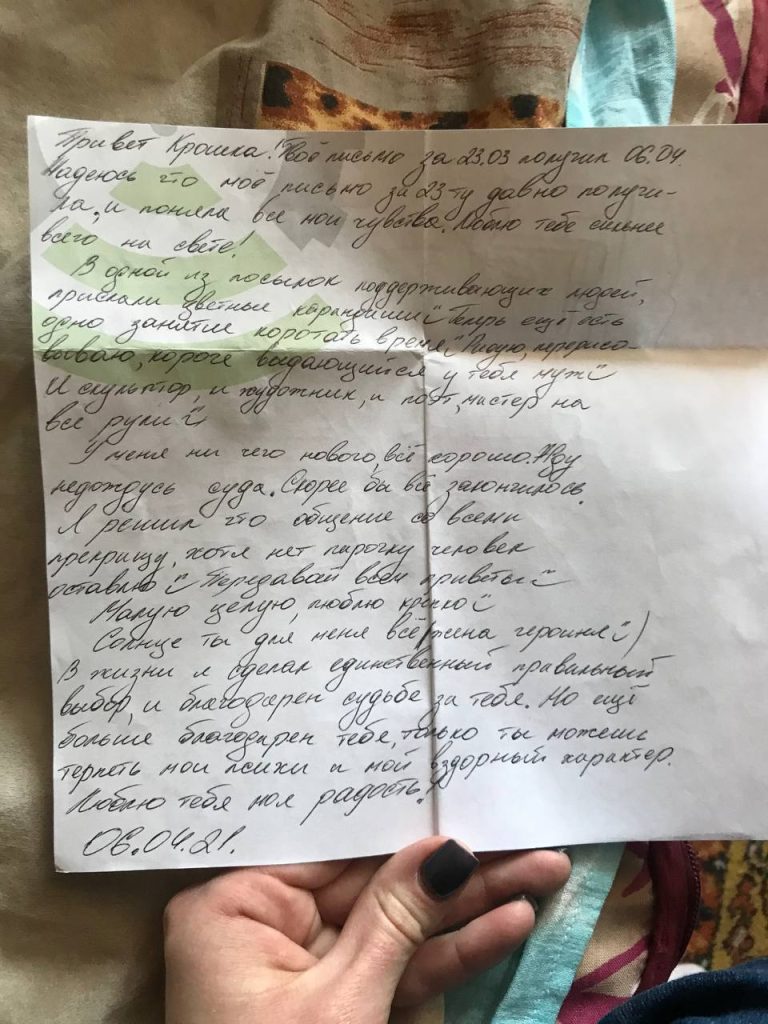 Привет Крошка! Твоё письмо за 23.03 получил 06.04.
Надеюсь что моё письмо за 23-ту давно получи-
ла, и поняла все мои чувства. Люблю тебе сильнее
всего на свете!
В одной из посылок поддерживающих людей,
прислали цветные карандаши Теперь ещё есть
одно занятие коротать время Рисую, перерисо-
вываю, короче выдающийся у тебя муж
И скульптор, и художник, и поэт, мастер на
все руки
У меня ни чего нового, всё хорошо. Жду
недождусь суда. Скорее бы всё закончилось.
Я решил что общение со всеми
прекращу, хотя нет парочку человек
оставлю Передавай всем приветы
Малую целую, люблю крепко
Солнце ты для меня всё, жена героиня )
В жизни я сделал единственный правильный
выбор, и благодарен судьбе за тебя. Но ещё
больше благодарен тебе, только ты можешь
терпеть мои психи и мой вздорный характер.
Люблю тебя моя радость.
06.04.21.